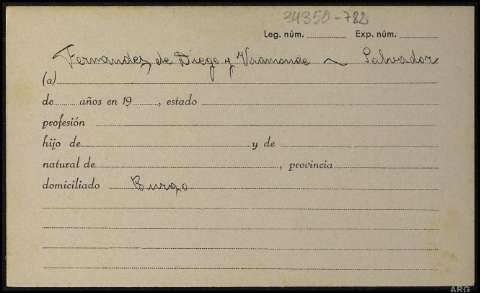 34350-782
Leg. núm. Exp. núm.
Fernandez de Diego y Viramonde ~ Salvador
(a)
de años en 19 , estado
profesión
hijo de y de
natural de , provincia
domiciliado Burgo
ARG